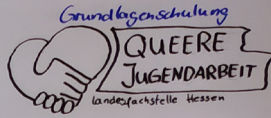 Grundlagenschulung
QUEERE
JUGENDARBEIT
Landesfachstelle Hessen